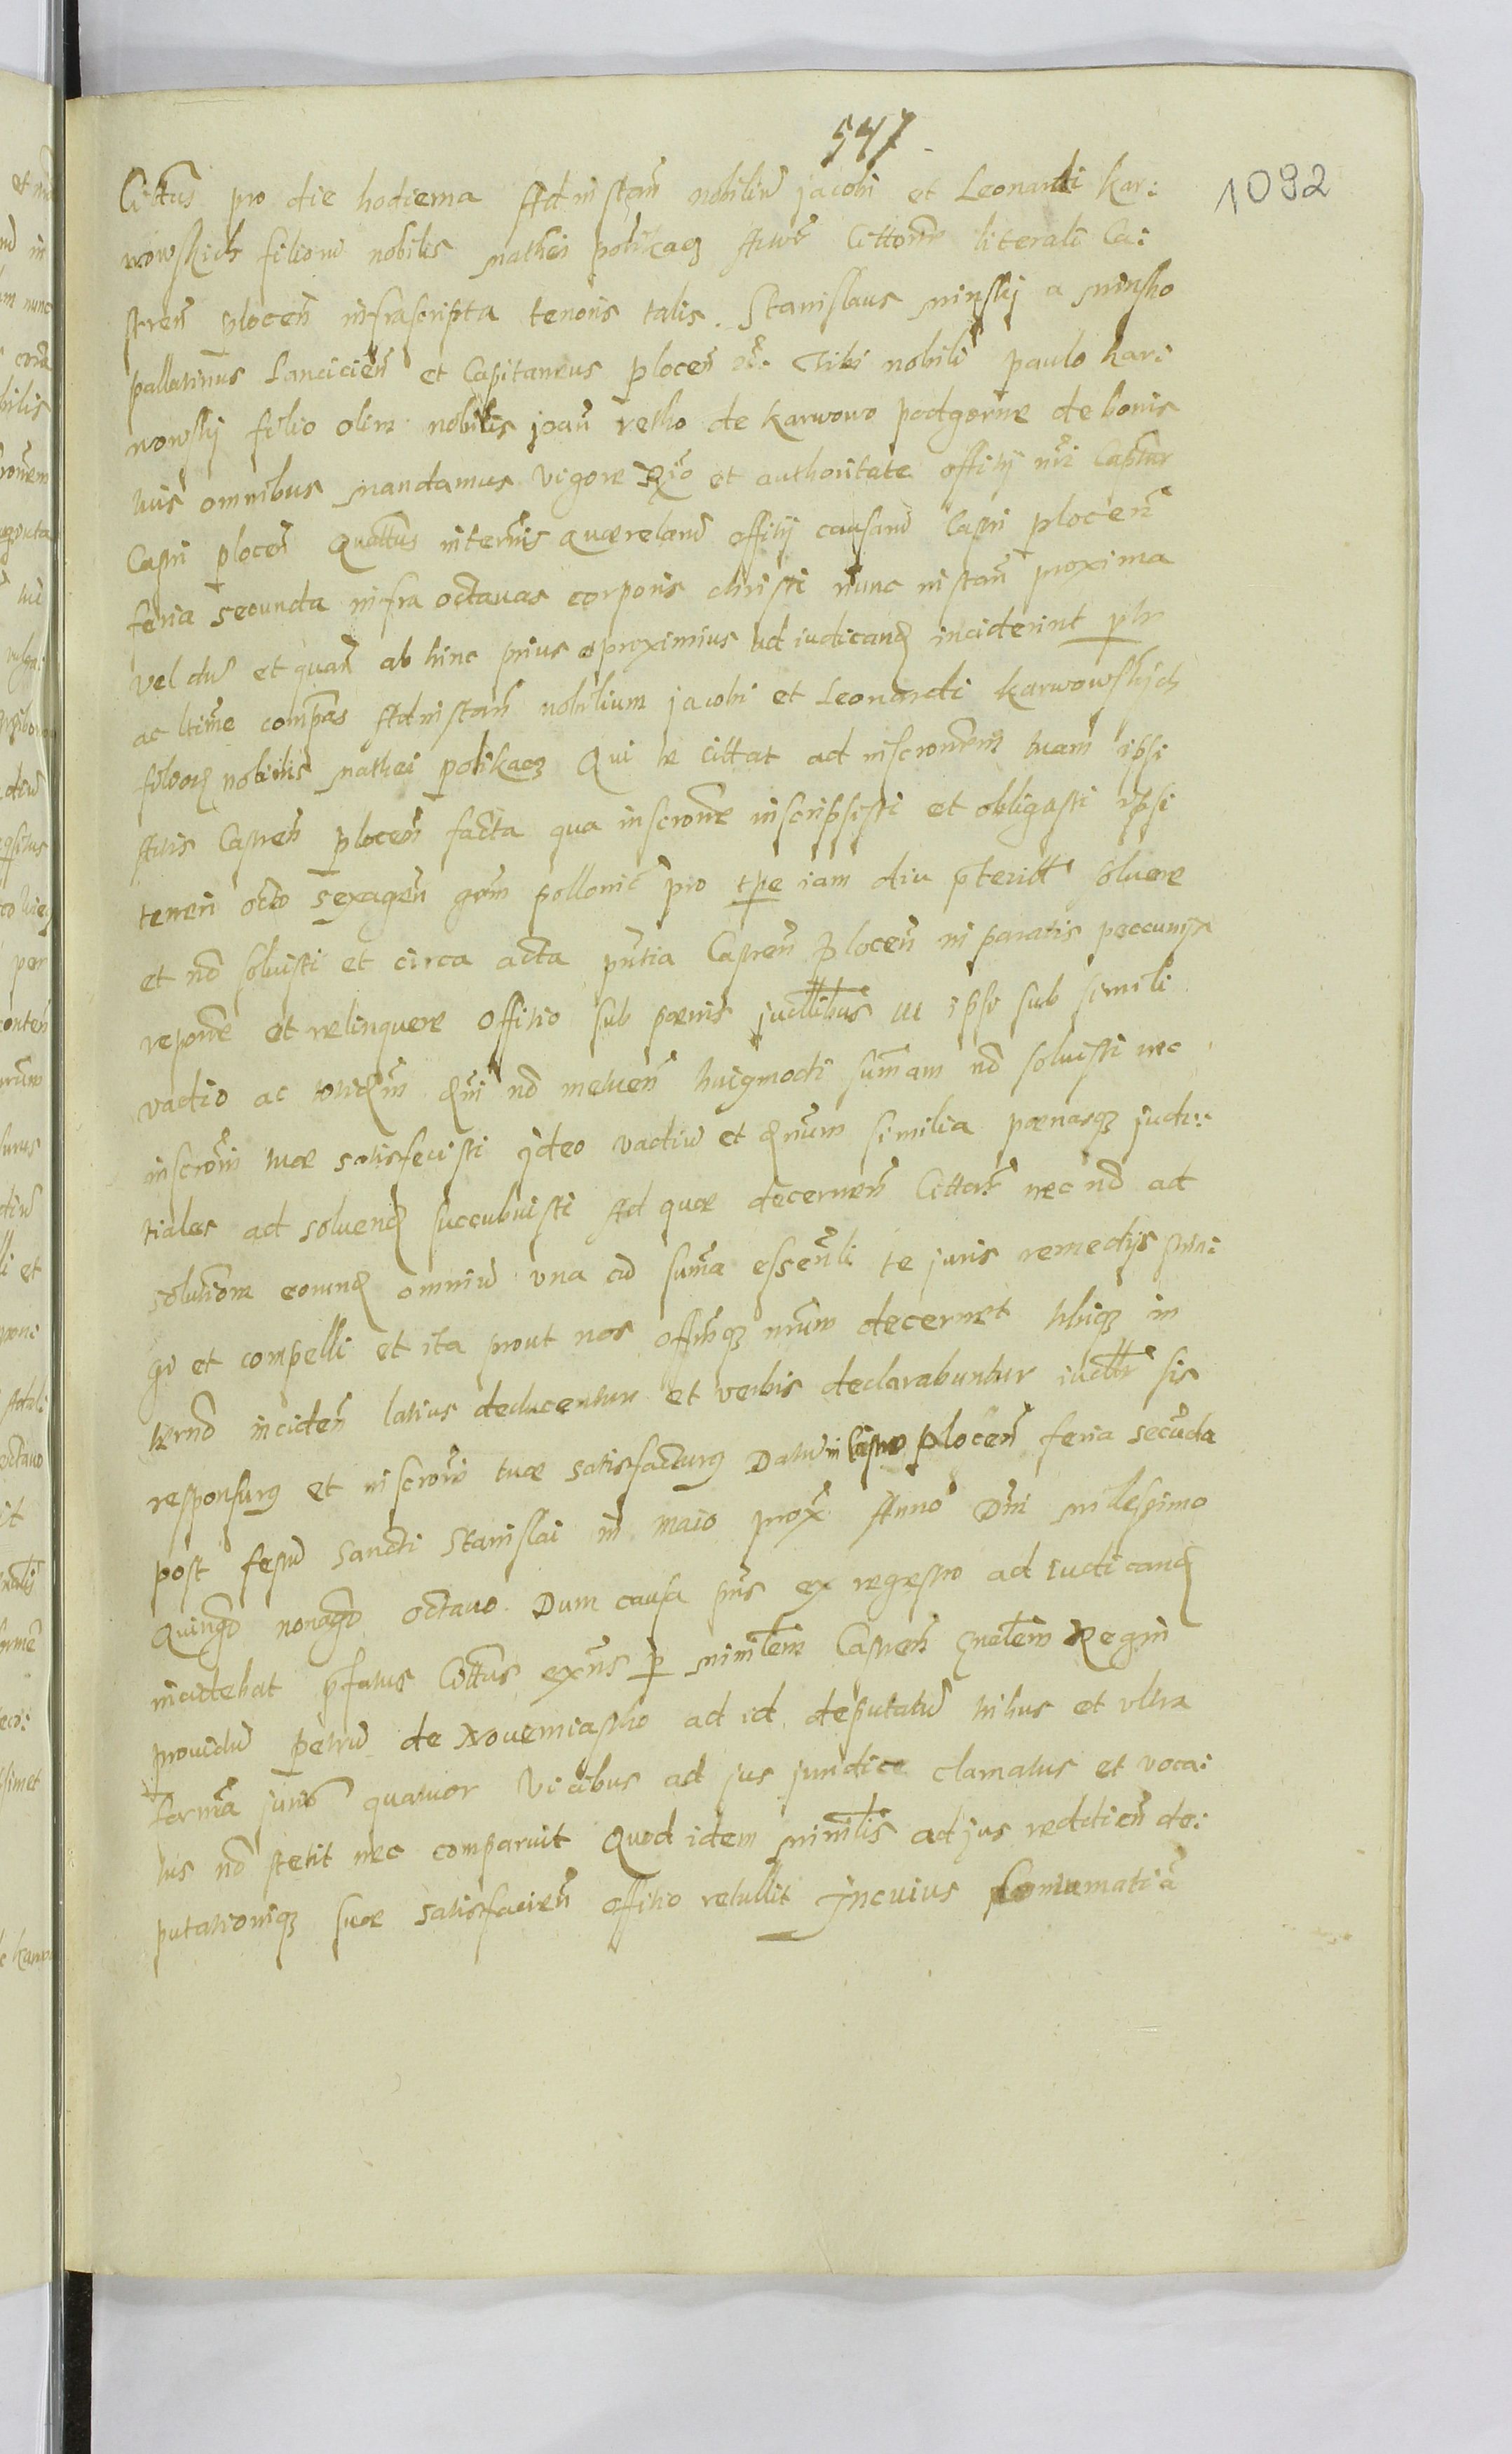 547.
1092
Cittus pro die hodierna Ad instan nobiliu Jacobi et Leonardi Kar:
wowskich filioru nobilis Mathei Potikacz Autore Cittone literali Ca:
stren plocen infrascripta tenoris talis. Stanislaus Minsky a Minsko
pallatinus Lancicien et Capitaneus plocen etc. Tibi nobili paulo Kar:
wowsky filio olim nobilis joan retko de Karwowo podgorne de bonis
tuis omnibus Mandamus vigore Rgio et authoritate offitii nri Captur
Capri plocen Quattus in termis quaereland offitii causaru Castri plocen
feria secunda infra octavas corporis christi nunc instan proxima
vel du et quan ab hinc prius et proximius ad iudicand inciderint ptr
ac ltime compas Ad instan nobilium jacobi et Leonardi Karwowskych
filiorq nobilis Mathei Potikacz Qui te cittat ad inscronem tuam ipsi
Actis Castren plocen facta qua inscrone inscripsisti et obligasti ipsi
teneri octo sexagen grm pollonic pro tpe iam diu pterito solvere
et no solvisti et circa acta pntia Castren plocen in paratis peccunys
reponere et relinquere offitio sub poenis judlibus ut ipso sub simili
vadio ac totidem qui no metuen huigmodi sumam no solvisti nec
inscroni tuae satisfecisti Ideo vadiu et damnum similia poenasq judi:
tiales ad solvend succubuisti Ad quae decernen Cittaris nec no ad
solutione eorund omniu una cu suma essenli te juris remedys strin:
gi et compelli et ita prout nos offmq nrum decernet Ubiq in
termo inciden latius deducentur et verbis declarabuntur iudltr sis
responsurq et inscroni tuae satisfacturq Datu in Castro plocen feria secuda
post festu Sancti Stanislai in maio prox Anno Dni Milessimo
Quingmo nonagmo octavo. Dum causa pns ex regestro ad iudicand
incidebat pfatus Cittus exns p Ministlem Castren gnalem Regni
providu petru de Noviemiastho ad id deputatu tribus et ultra
forma juris quatuor Vicibus ad jus juridice clamatus et voca:
tus no stetit nec comparuit Quod idem Ministlis ad jus reddicen de:
putationiq suae satisfacien offitio retullit Incuius Contumatia